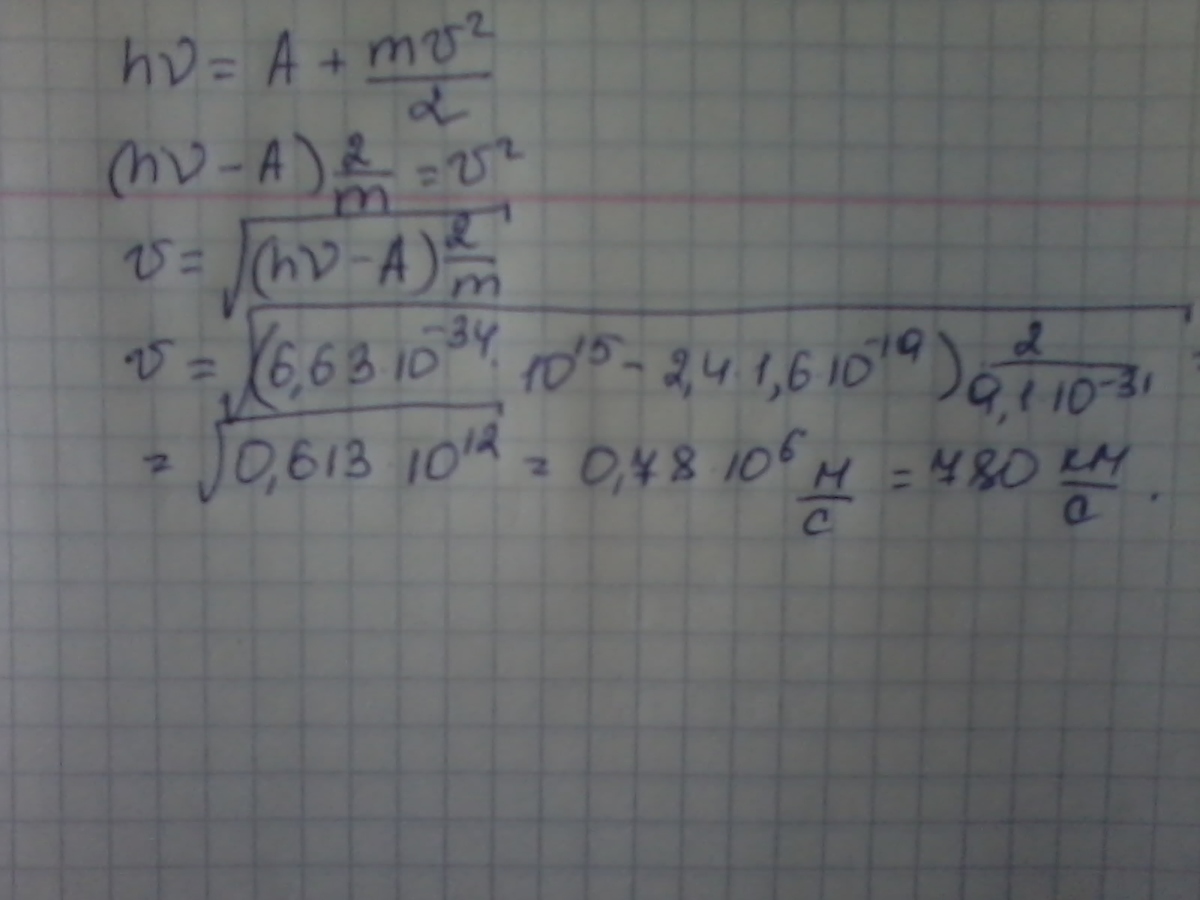 hν = A + mv²/2
(hν - A) 2/m = v²
v = √((hν - A) 2/m)
v = √((6,63·10⁻³⁴ · 10¹⁵ - 2,4·1,6·10⁻¹⁹) 2/(9,1·10⁻³¹)) =
= √(0,613·10¹²) = 0,78·10⁶ м/с = 780 км/с.